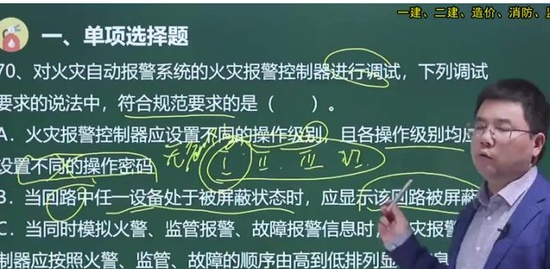 一建、二建、造价、消防、
一、单项选择题
70、对火灾自动报警系统的火灾报警控制器进行调试，下列调试
要求的说法中，符合规范要求的是（　　）。
A．火灾报警控制器应设置不同的操作级别，且各操作级别均应
设置不同的操作密码
I II III VI
B．当回路中任一设备处于被屏蔽状态时，应显示该回路被屏蔽
C．当同时模拟火警、监管报警、故障报警信息时，火灾报警
制器应按照火警、监管、故障的顺序由高到低排列显 信息